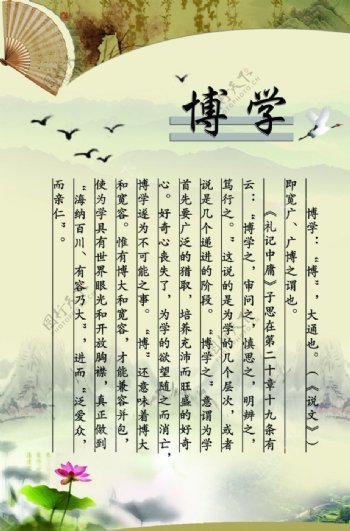 博学
博学：“博”，大通也。（《说文》）
即宽广、广博之谓也。
《礼记中庸》子思在第二十章十九条有
云：“博学之，审问之，慎思之，明辨之，
笃行之。”这说的是为学的几个层次，或者
说是几个递进的阶段。“博学之”意谓为学
首先要广泛的猎取，培养充沛而旺盛的好奇
心。好奇心丧失了，为学的欲望随之而消亡，
博学遂为不可能之事。“博”还意味着博大
和宽容。惟有博大和宽容，才能兼容并包，
使为学具有世界眼光和开放胸襟，真正做到
“海纳百川、有容乃大”，进而“泛爱众，
而亲仁”。